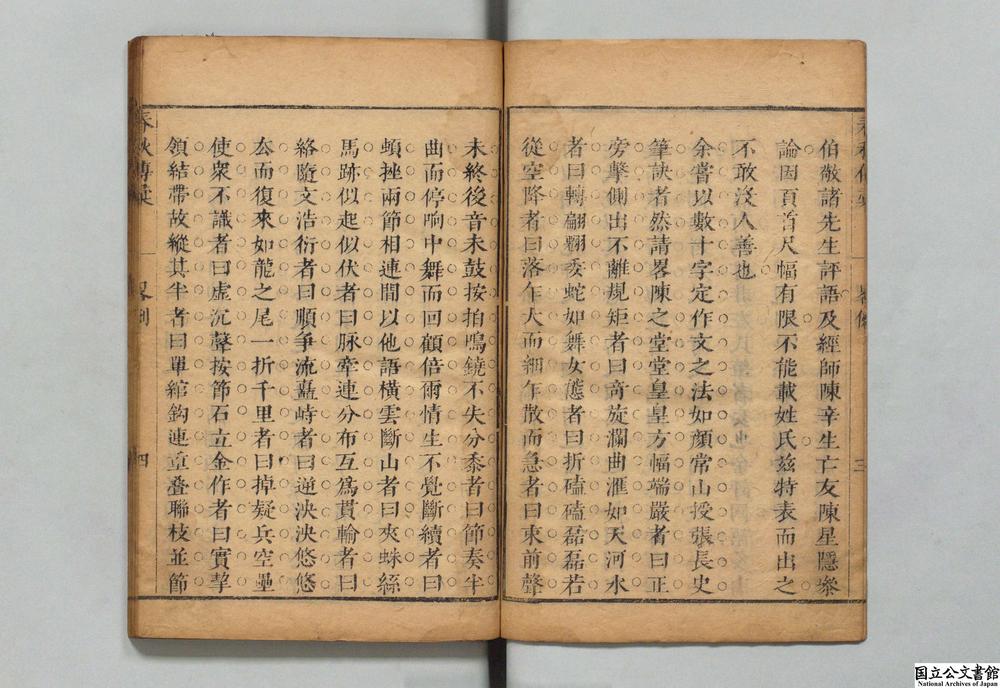 伯敬諸先生評語及經師陳辛生亡友陳星隱參
論因頁首尺幅有限不能載姓氏兹特表而出之
不敢没人善也
余嘗以數十字定作文之法如顔常山授張長史
筆訣者然請畧陳之堂堂皇皇方幅端嚴者曰正
旁擊側出不離規矩者曰竒旋瀾曲滙如天河水
者曰轉翩翻委蛇如舞女態者曰折磕磕磊磊若
從空降者曰落乍大而細乍散而急者曰束前聲
未終後音未鼓按拍鳴鐃不失分黍者曰節奏半
曲而停响中舞而回顧倍爾情生不覺斷續者曰
頓挫兩節相連間以他語橫雲斷山者曰夾蛛絲
馬跡似起似伏者曰脉牽連分布互爲貫輸者曰
絡隨文浩衍者曰順爭流矗峙者曰逆泱泱悠悠
去而復來如龍之尾一折千里者曰掉疑兵空壘
使衆不識者曰虚沉聲按節石立金作者曰實挈
領結帶故縱其半者曰單綰鈎連重叠聯枝並節
春秋傳
四
三
国立公文書館
National Archives of Japan